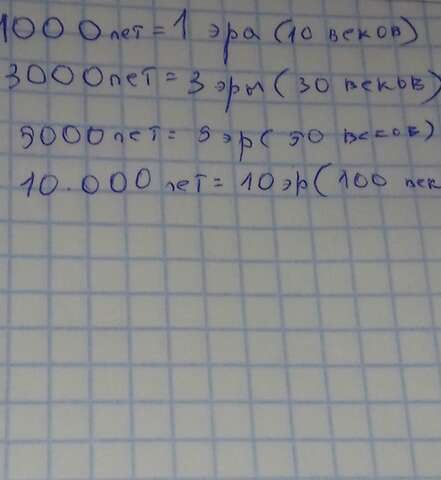 1000 лет = 1 эра (10 веков)
3000 лет = 3 эры (30 веков)
5000 лет = 5 эр (50 веков)
10.000 лет = 10 эр (100 век